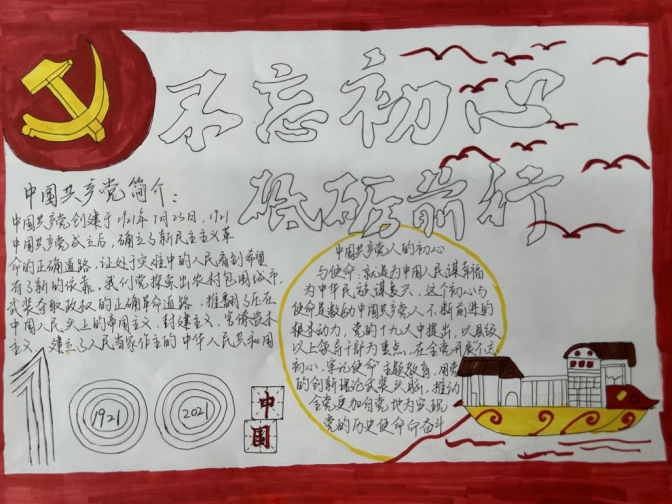 不忘初心
砥砺前行
中国共产党简介：
中国共产党创建于1921年7月23日，1921
中国共产党成立后，确立了新民主主义革
命的正确道路，让处于灾难中的人民看到希望
有了新的依靠，我们党探索出农村包围城市，
武装夺取政权的正确革命道路，推翻了压在
中国人民头上的帝国主义，封建主义，官僚资本
主义，建立了人民当家作主的中华人民共和国
中国共产党人的初心
与使命：就是为中国人民谋幸福
为中华民族谋复兴，这个初心与
使命是激励中国共产党人不断前进的
根本动力，党的十九大中提出，以县级
以上领导干部为重点，在全党开展"不忘
初心，牢记使命"主题教育，用党
的创新理论武装头脑，推动
全党更加自觉地为实现
党的历史使命而奋斗
100
1921
2021
中
国